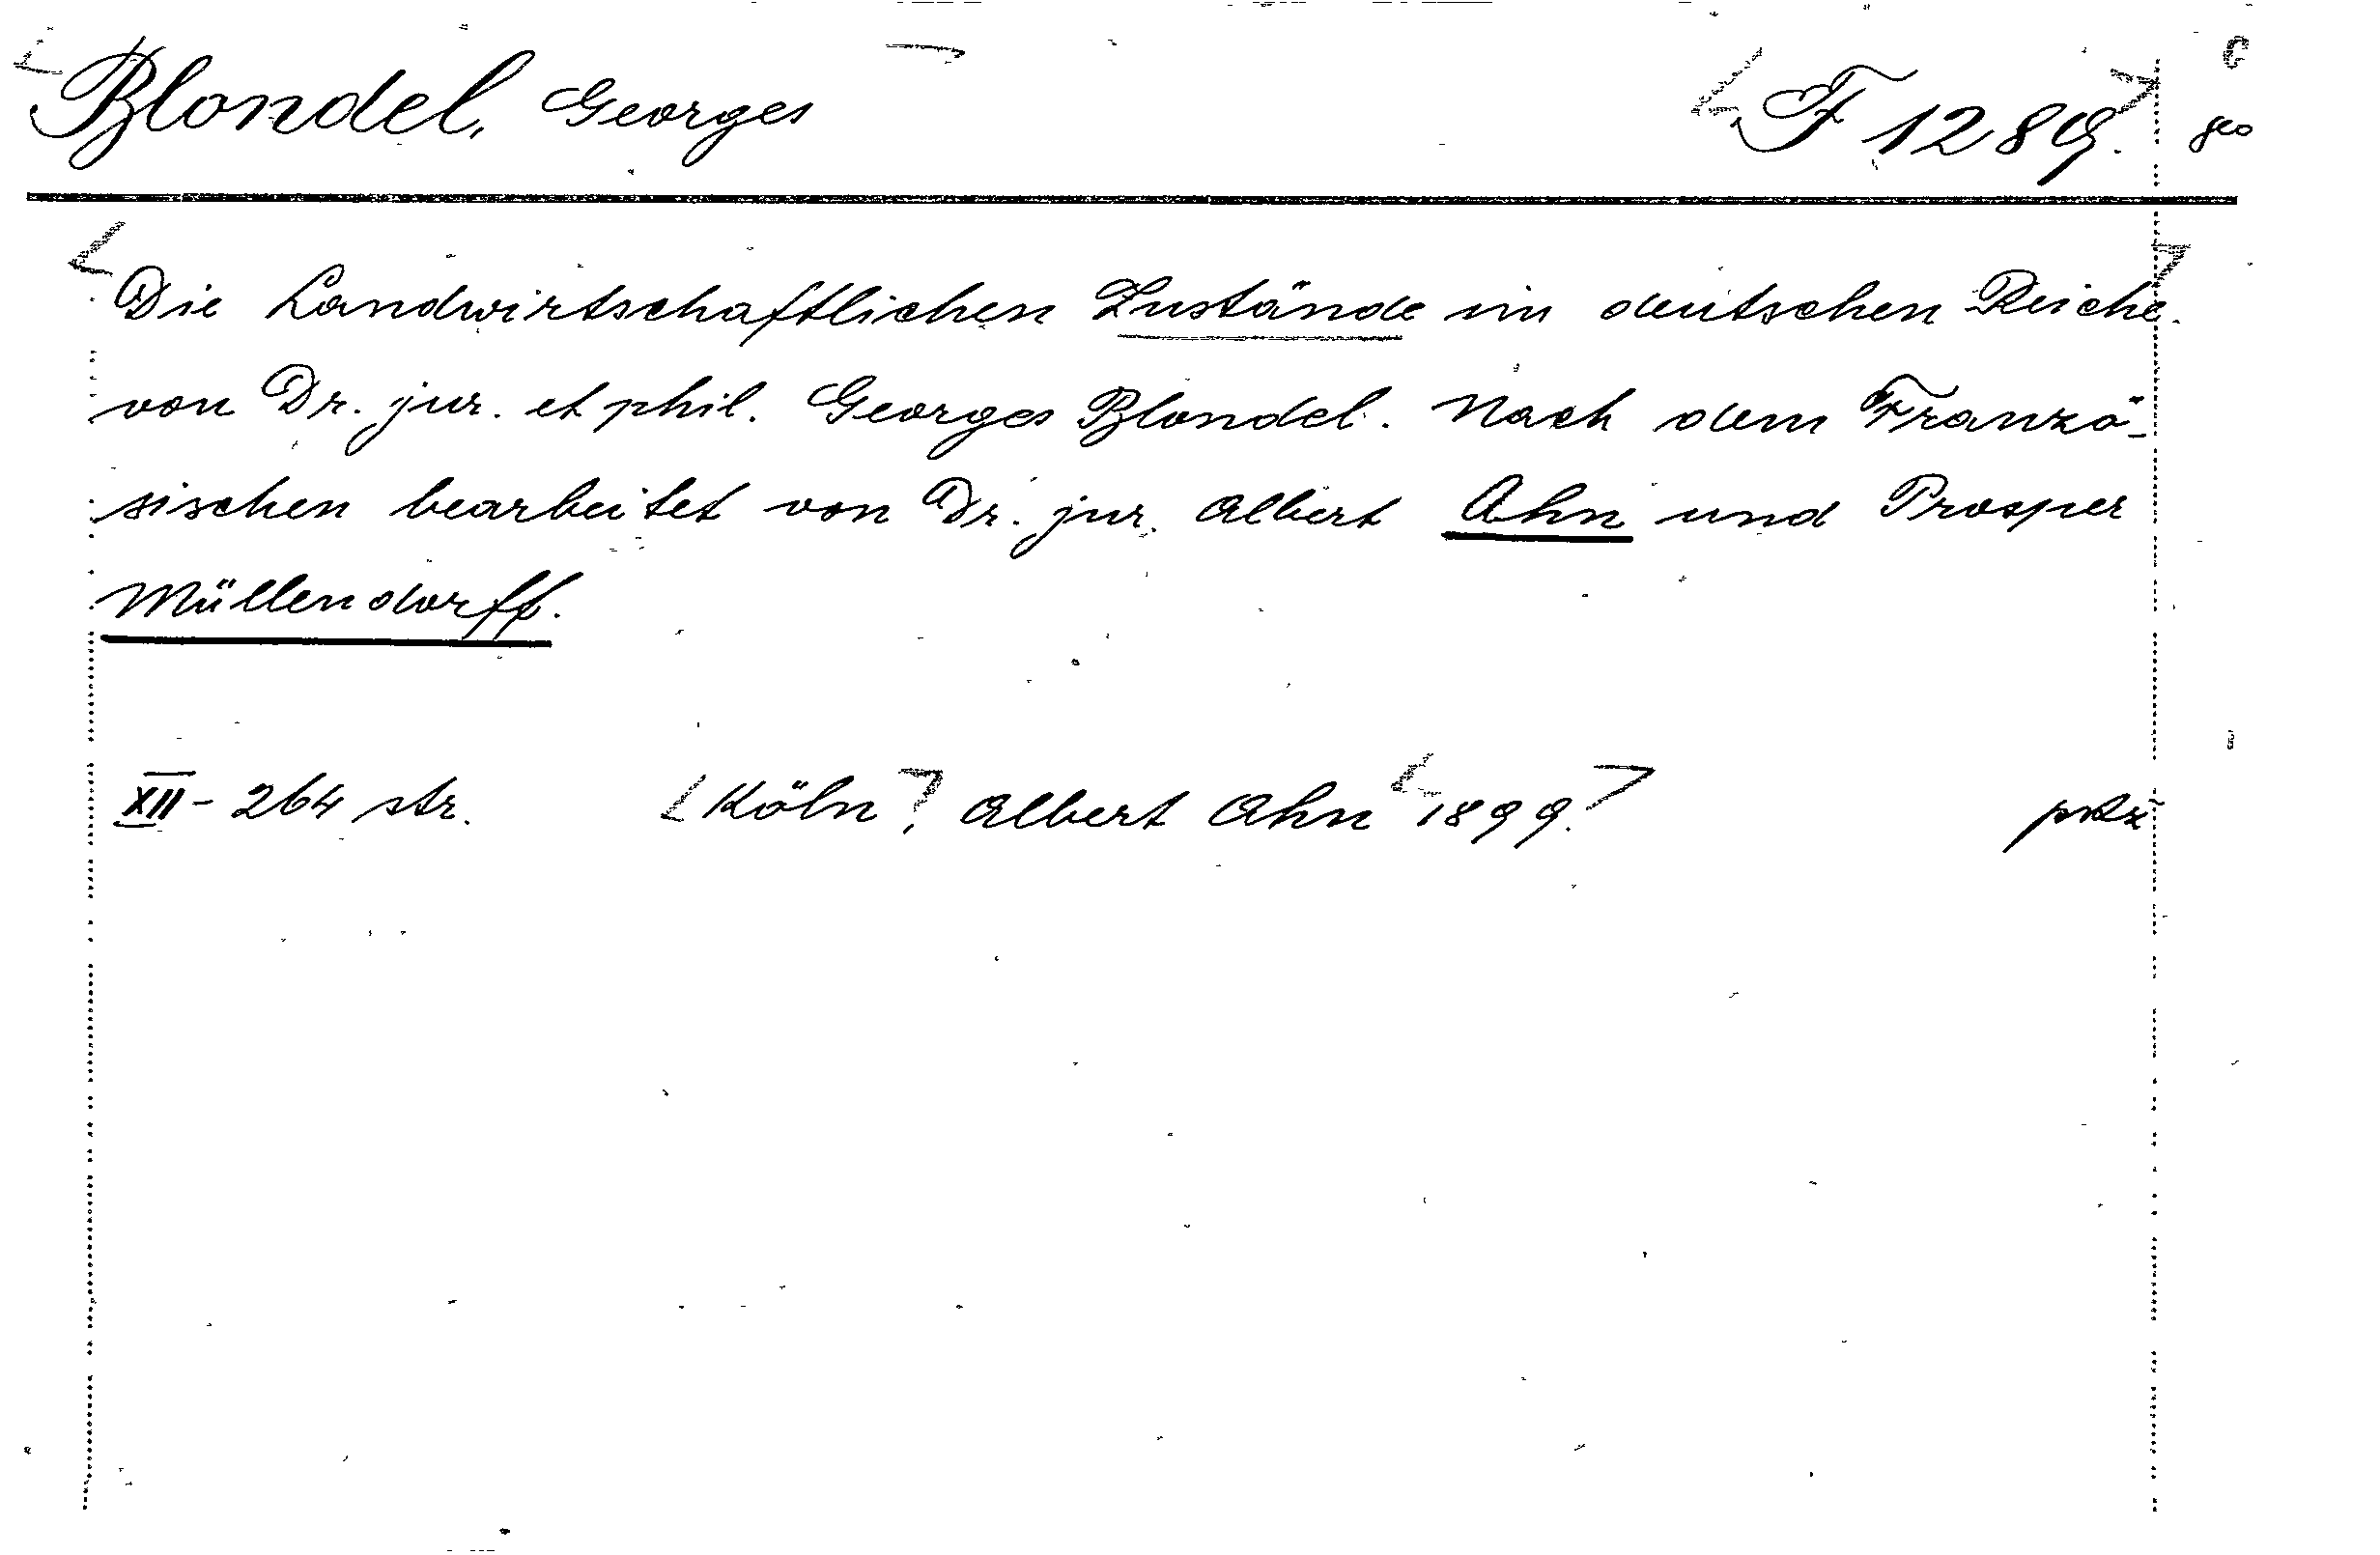 Blondel, Georges F 1289. geo
Die Landwirtschaftlichen Zustände im deutschen Reiche.
von Dr. jur. et phil. Georges Blondel. Nach dem Franzö-
sischen bearbeitet von Dr. jur. Albert Ahn und Prosper
Müllendorff.
XII - 264 str. Köln, Albert Ahn 1899.